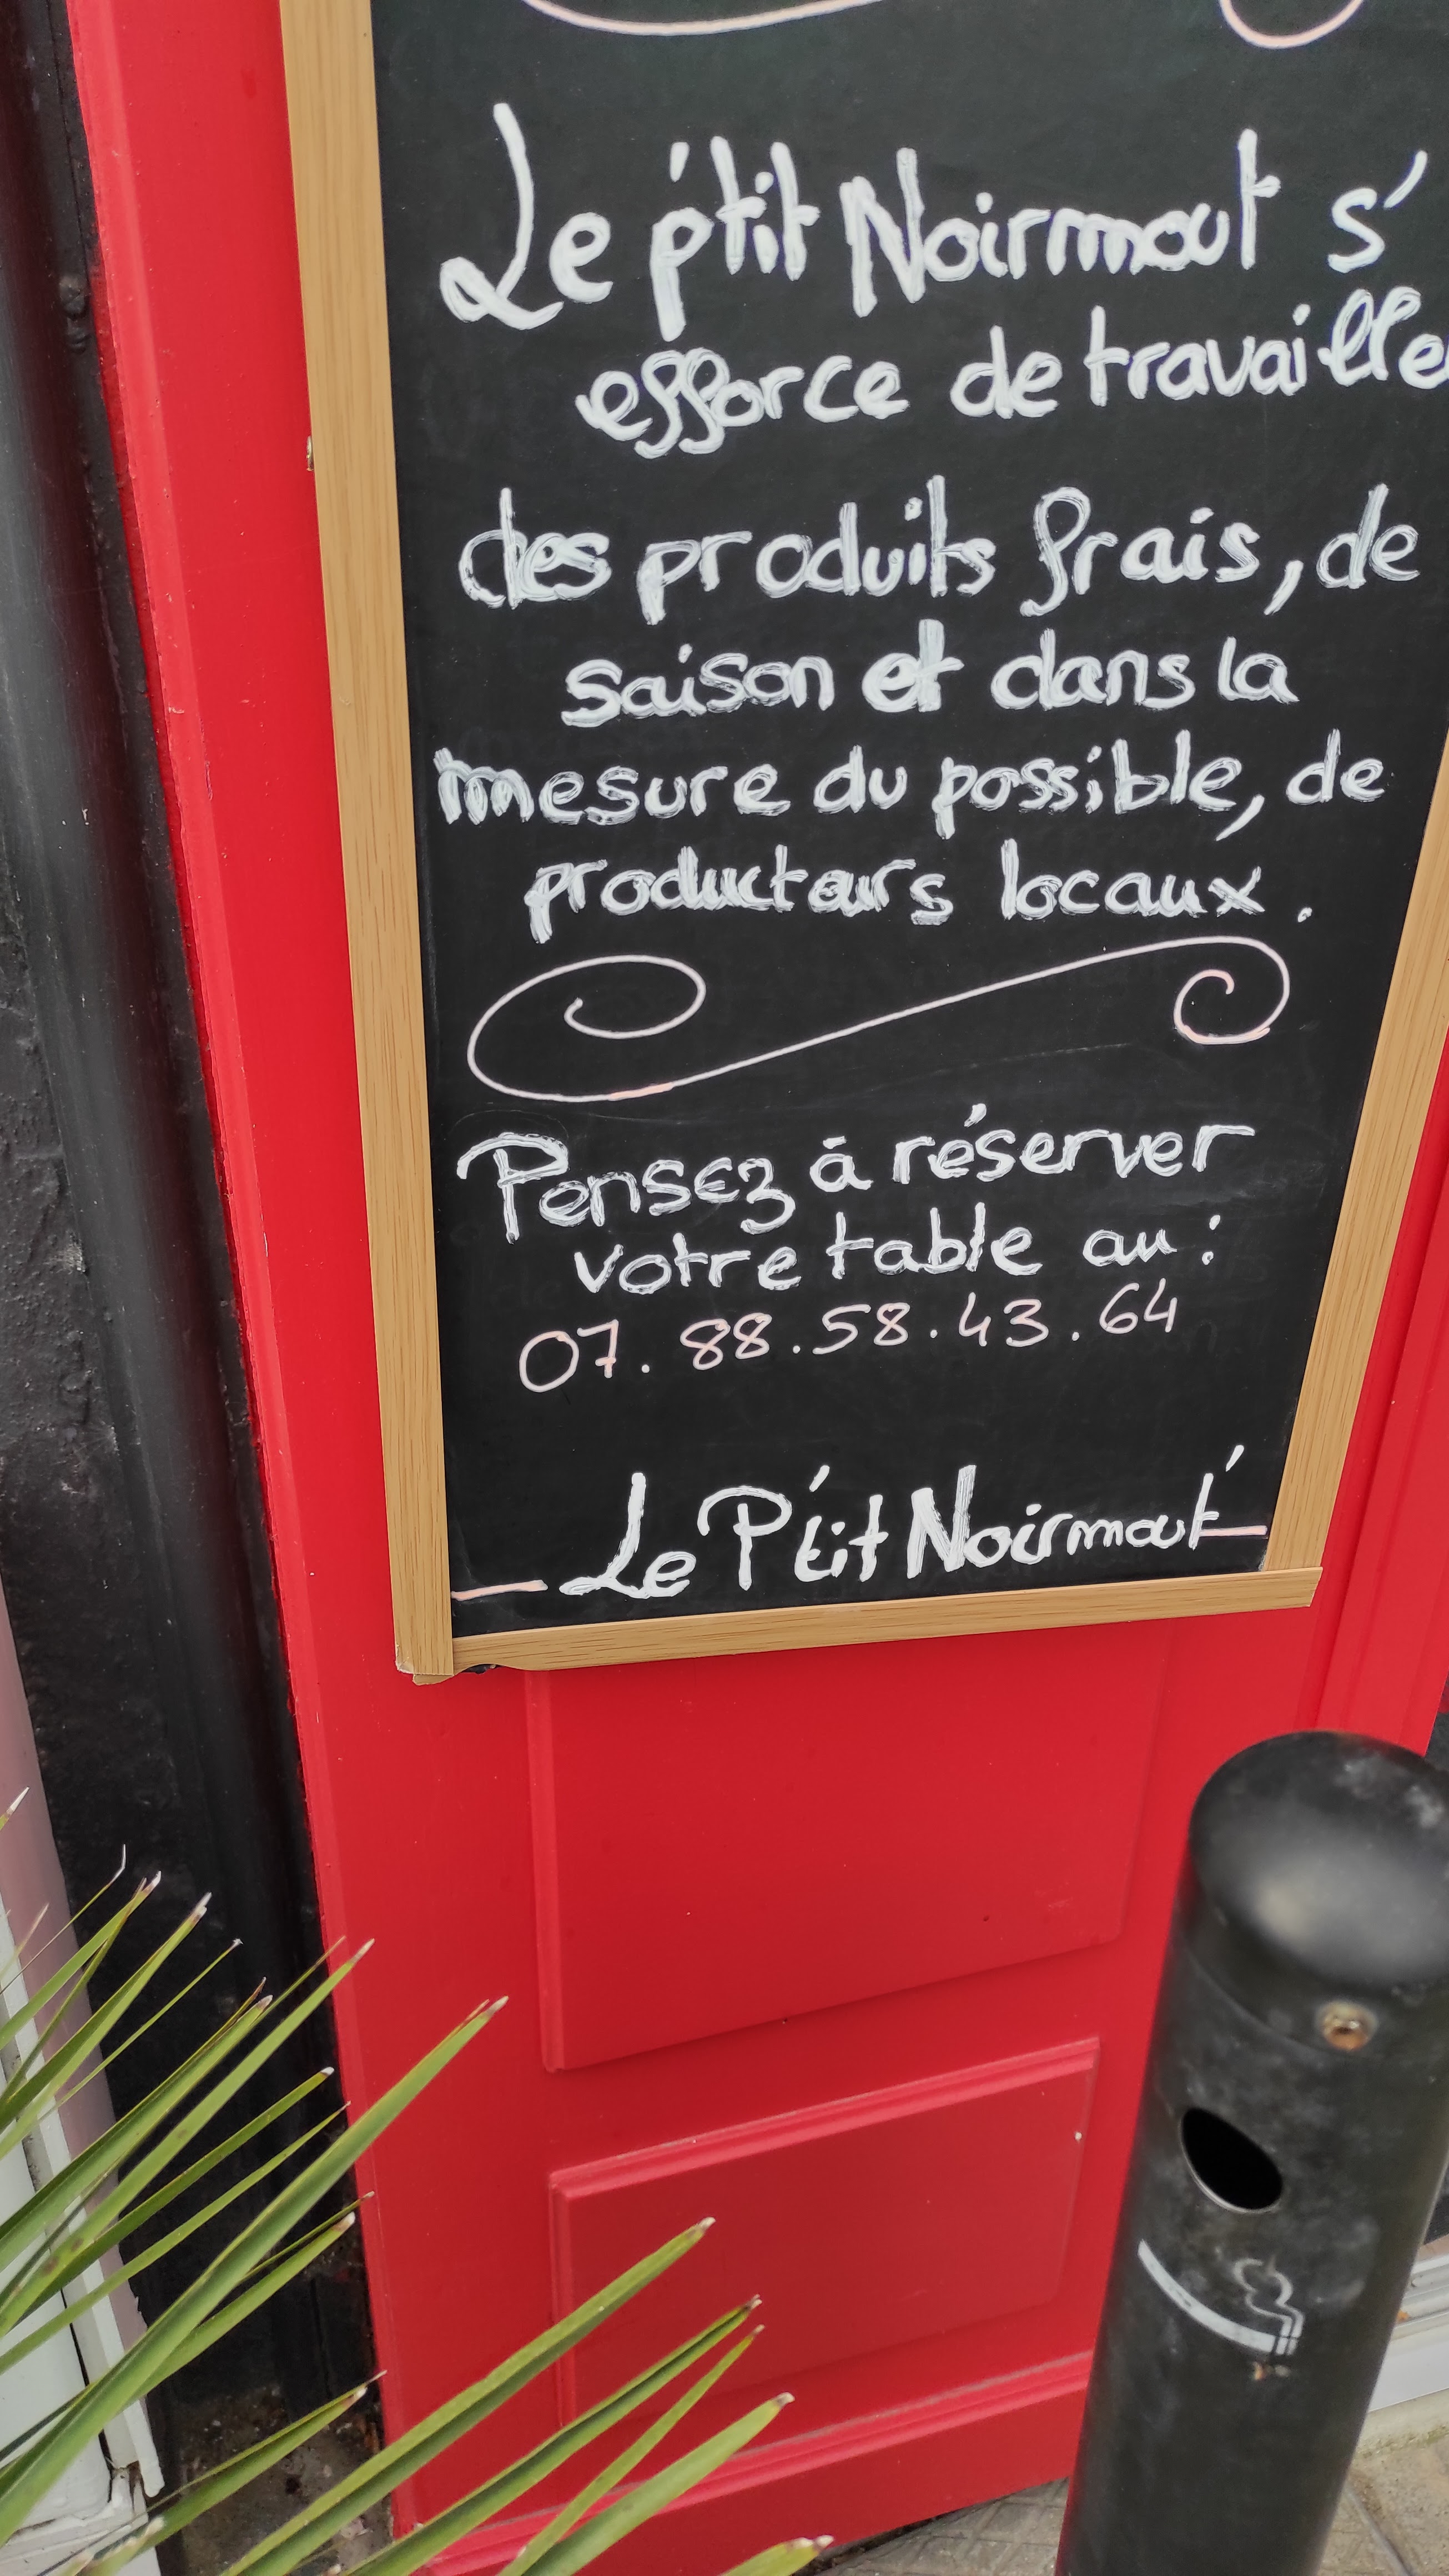 Le p'tit Noirmout s'
efforce de travailler
des produits frais, de
saison et dans la
mesure du possible, de
producteurs locaux.
Pensez à réserver
votre table au :
07.88.58.43.64
Le P'tit Noirmout'